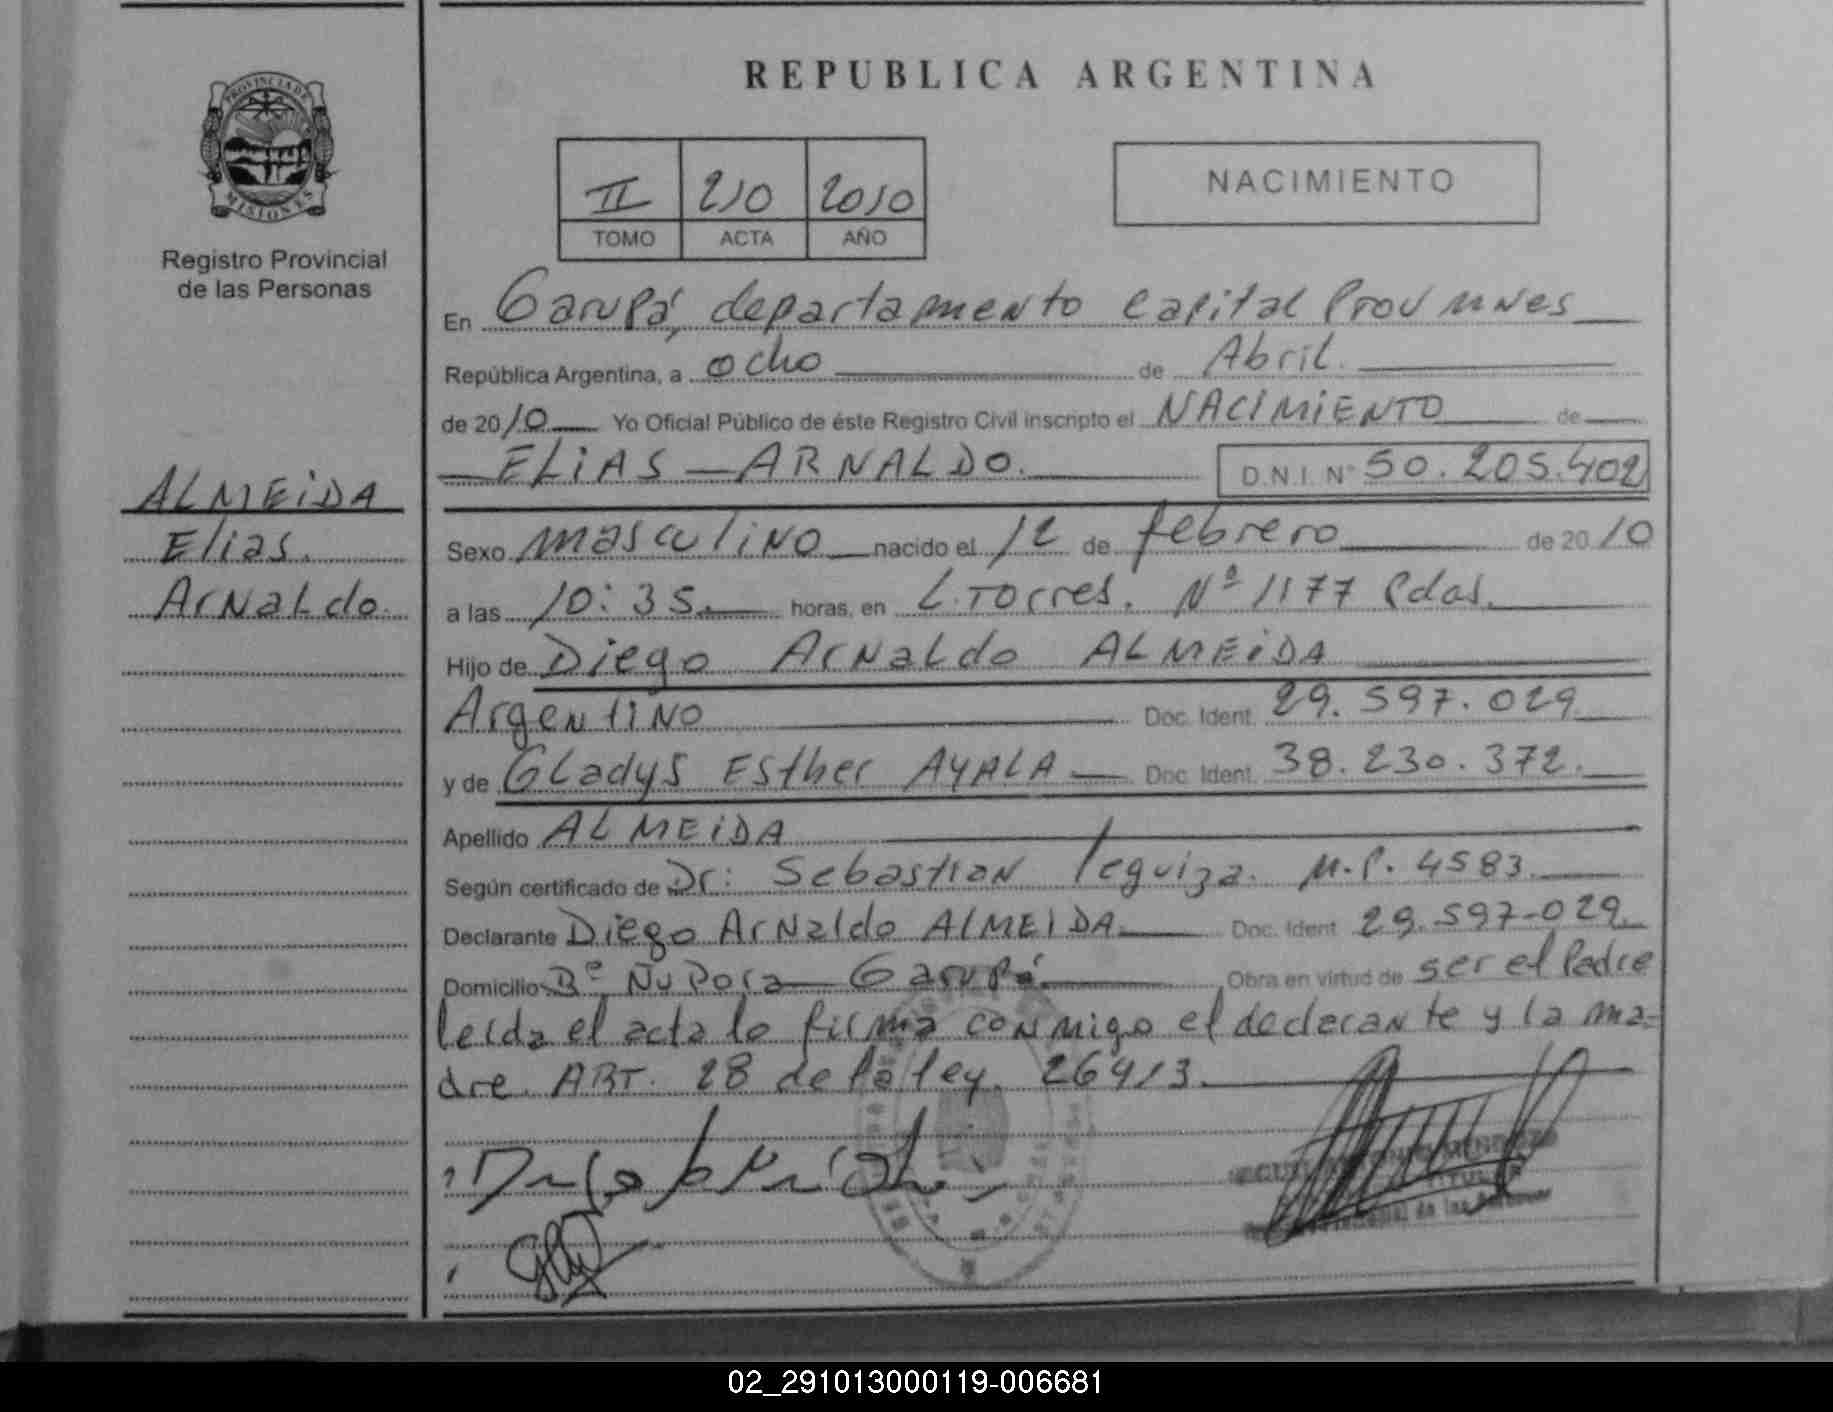 REPUBLICA ARGENTINA
PROVINCIA DE
MISIONES
Registro Provincial
de las Personas
II 210 2010
TOMO ACTA AÑO
NACIMIENTO
En Garupá, departamento Capital Prov Mnes
República Argentina, a ocho de Abril.
de 2010 Yo Oficial Público de éste Registro Civil inscripto el NACIMIENTO de
ELIAS ARNALDO. D.N.I. Nº 50.205.402
ALMEIDA
Elias.
Arnaldo.
Sexo masculino nacido el 12 de febrero de 2010
a las 10:35. horas, en L. Torres. Nº 1177 Pdas.
Hijo de Diego Arnaldo ALMEIDA
Argentino Doc. Ident. 29.597.029
y de Gladys Esther AYALA Doc. Ident. 38.230.372.
Apellido ALMEIDA
Según certificado de Dr: Sebastian Leguiza. M.P. 4583.
Declarante Diego Arnaldo ALMEIDA. Doc. Ident. 29.597-029.
Domicilio Bº Ñu Pora Garupá Obra en virtud de ser el Padre
leida el acta lo firma conmigo el declarante y la ma-
dre. ART. 28 de la ley. 26413.
02_291013000119-006681